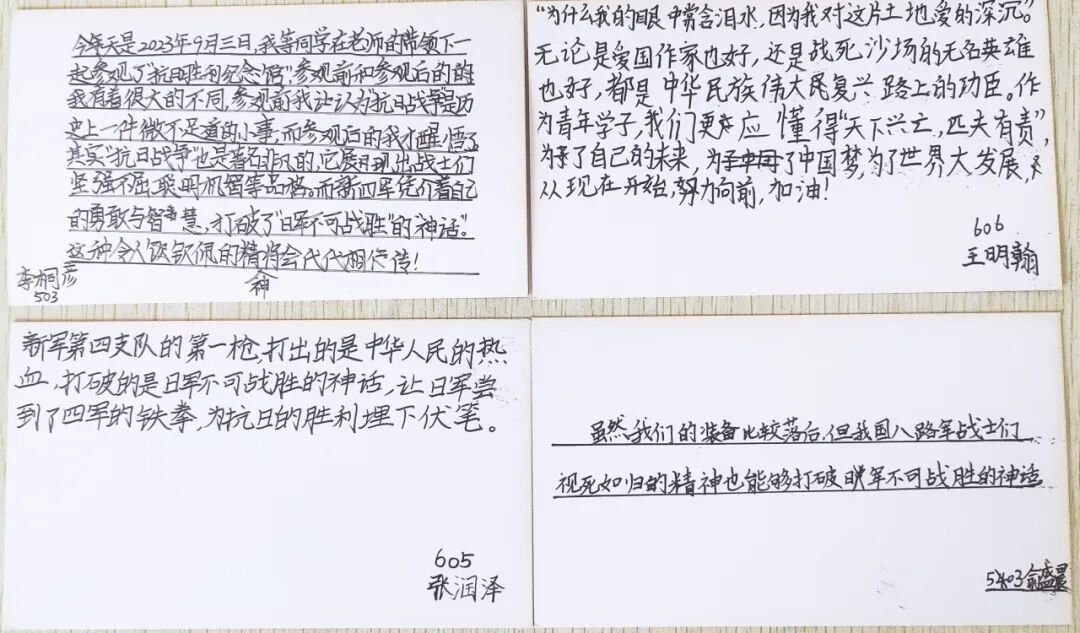 今天是2023年9月三日,我等同学在老师的带领下一
起参观了"抗日胜利纪念馆".参观前和参观后的的
我有着很大的不同,参观前我让认为"抗日战争"是历
史上一件微不足道的小事,而参观后的我才醒悟了
其实"抗日战争"也是著名非凡的,它展现出战士们
坚强不屈、聪明机智等品格。而新四军凭介着自己
的勇敢与智慧,打破了"日军不可战胜"的"神话"。
这种令人钦佩的精神会代代相传!
李桐彦
503
"为什么我的眼中常含泪水,因为我对这片土地爱的深沉。"
无论是爱国作家也好,还是战死沙场的无名英雄
也好,都是中华民族伟大复兴路上的功臣。作
为青年学子,我们更应懂得"天下兴亡,匹夫有责",
为了自己的未来,为了中国梦,为了世界大发展,
从现在开始,努力向前,加油!
606
王明翰
新军第四支队的第一枪,打出的是中华人民的热
血,打破的是日军不可战胜的神话,让日军尝
到了四军的铁拳,为抗日的胜利埋下伏笔。
605
张润泽
虽然我们的装备比较落后,但我国八路军战士们
视死如归的精神也能够打破日军不可战胜的神话
503俞盛晨